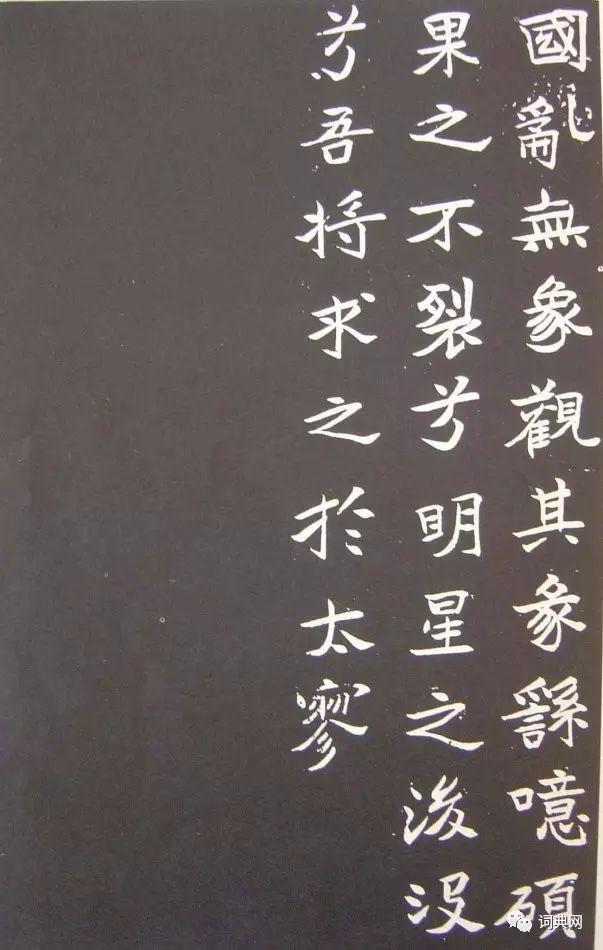 國亂無象觀其彖繇噫碩
果之不裂兮明星之後没
兮吾將求之於太寥
词典网